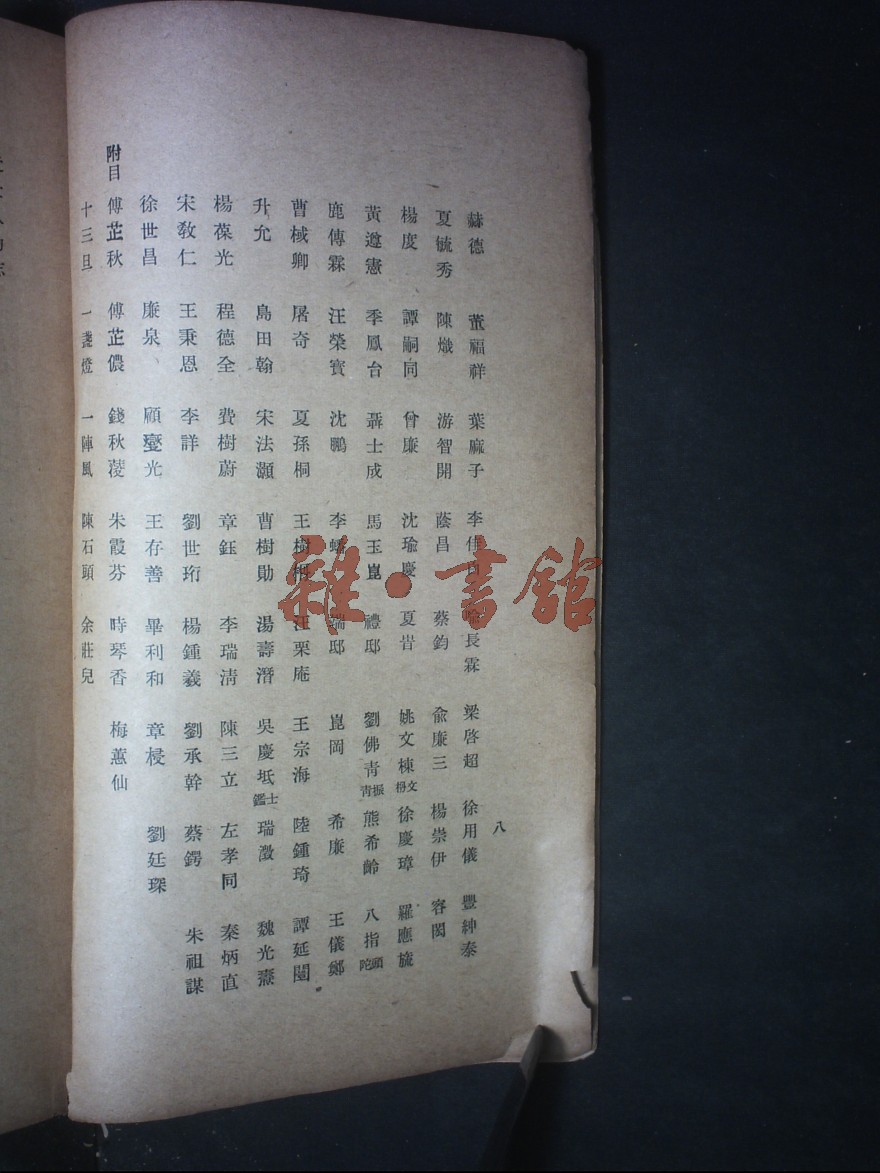 赫德 董福祥 葉麻子 李佳 長霖 梁啓超 徐用儀 豐紳泰
夏毓秀 陳熾 游智開 蔭昌 蔡鈞 俞廉三 楊崇伊 容閎
楊度 譚嗣同 曾廉 沈瑜慶 夏旹 姚文棟 文枬 徐慶璋 羅應旒
黃遵憲 季鳳台 聶士成 馬玉崑 禮邸 劉佛青 振青 熊希齡 八指頭陀
鹿傳霖 汪榮寶 沈鵬 李 端邸 崑岡 希廉 王儀鄭
曹棫卿 屠奇 夏孫桐 王樹 汪栗庵 王宗海 陸鍾琦 譚延闓
升允 島田翰 宋法灝 曹樹勛 湯壽潛 吳慶坻 士鑑 瑞澂 魏光燾
楊葆光 程德全 費樹蔚 章鈺 李瑞清 陳三立 左孝同 秦炳直
宋教仁 王秉恩 李詳 劉世珩 楊鍾羲 劉承幹 蔡鍔 朱祖謀
徐世昌 廉泉 顧燮光 王存善 畢利和 章梫 劉廷琛
附目 傅芷秋 傅芷儂 錢秋菱 朱霞芬 時琴香 梅蕙仙
十三旦 一盞燈 一陣風 陳石頭 余莊兒
八
雜·書館